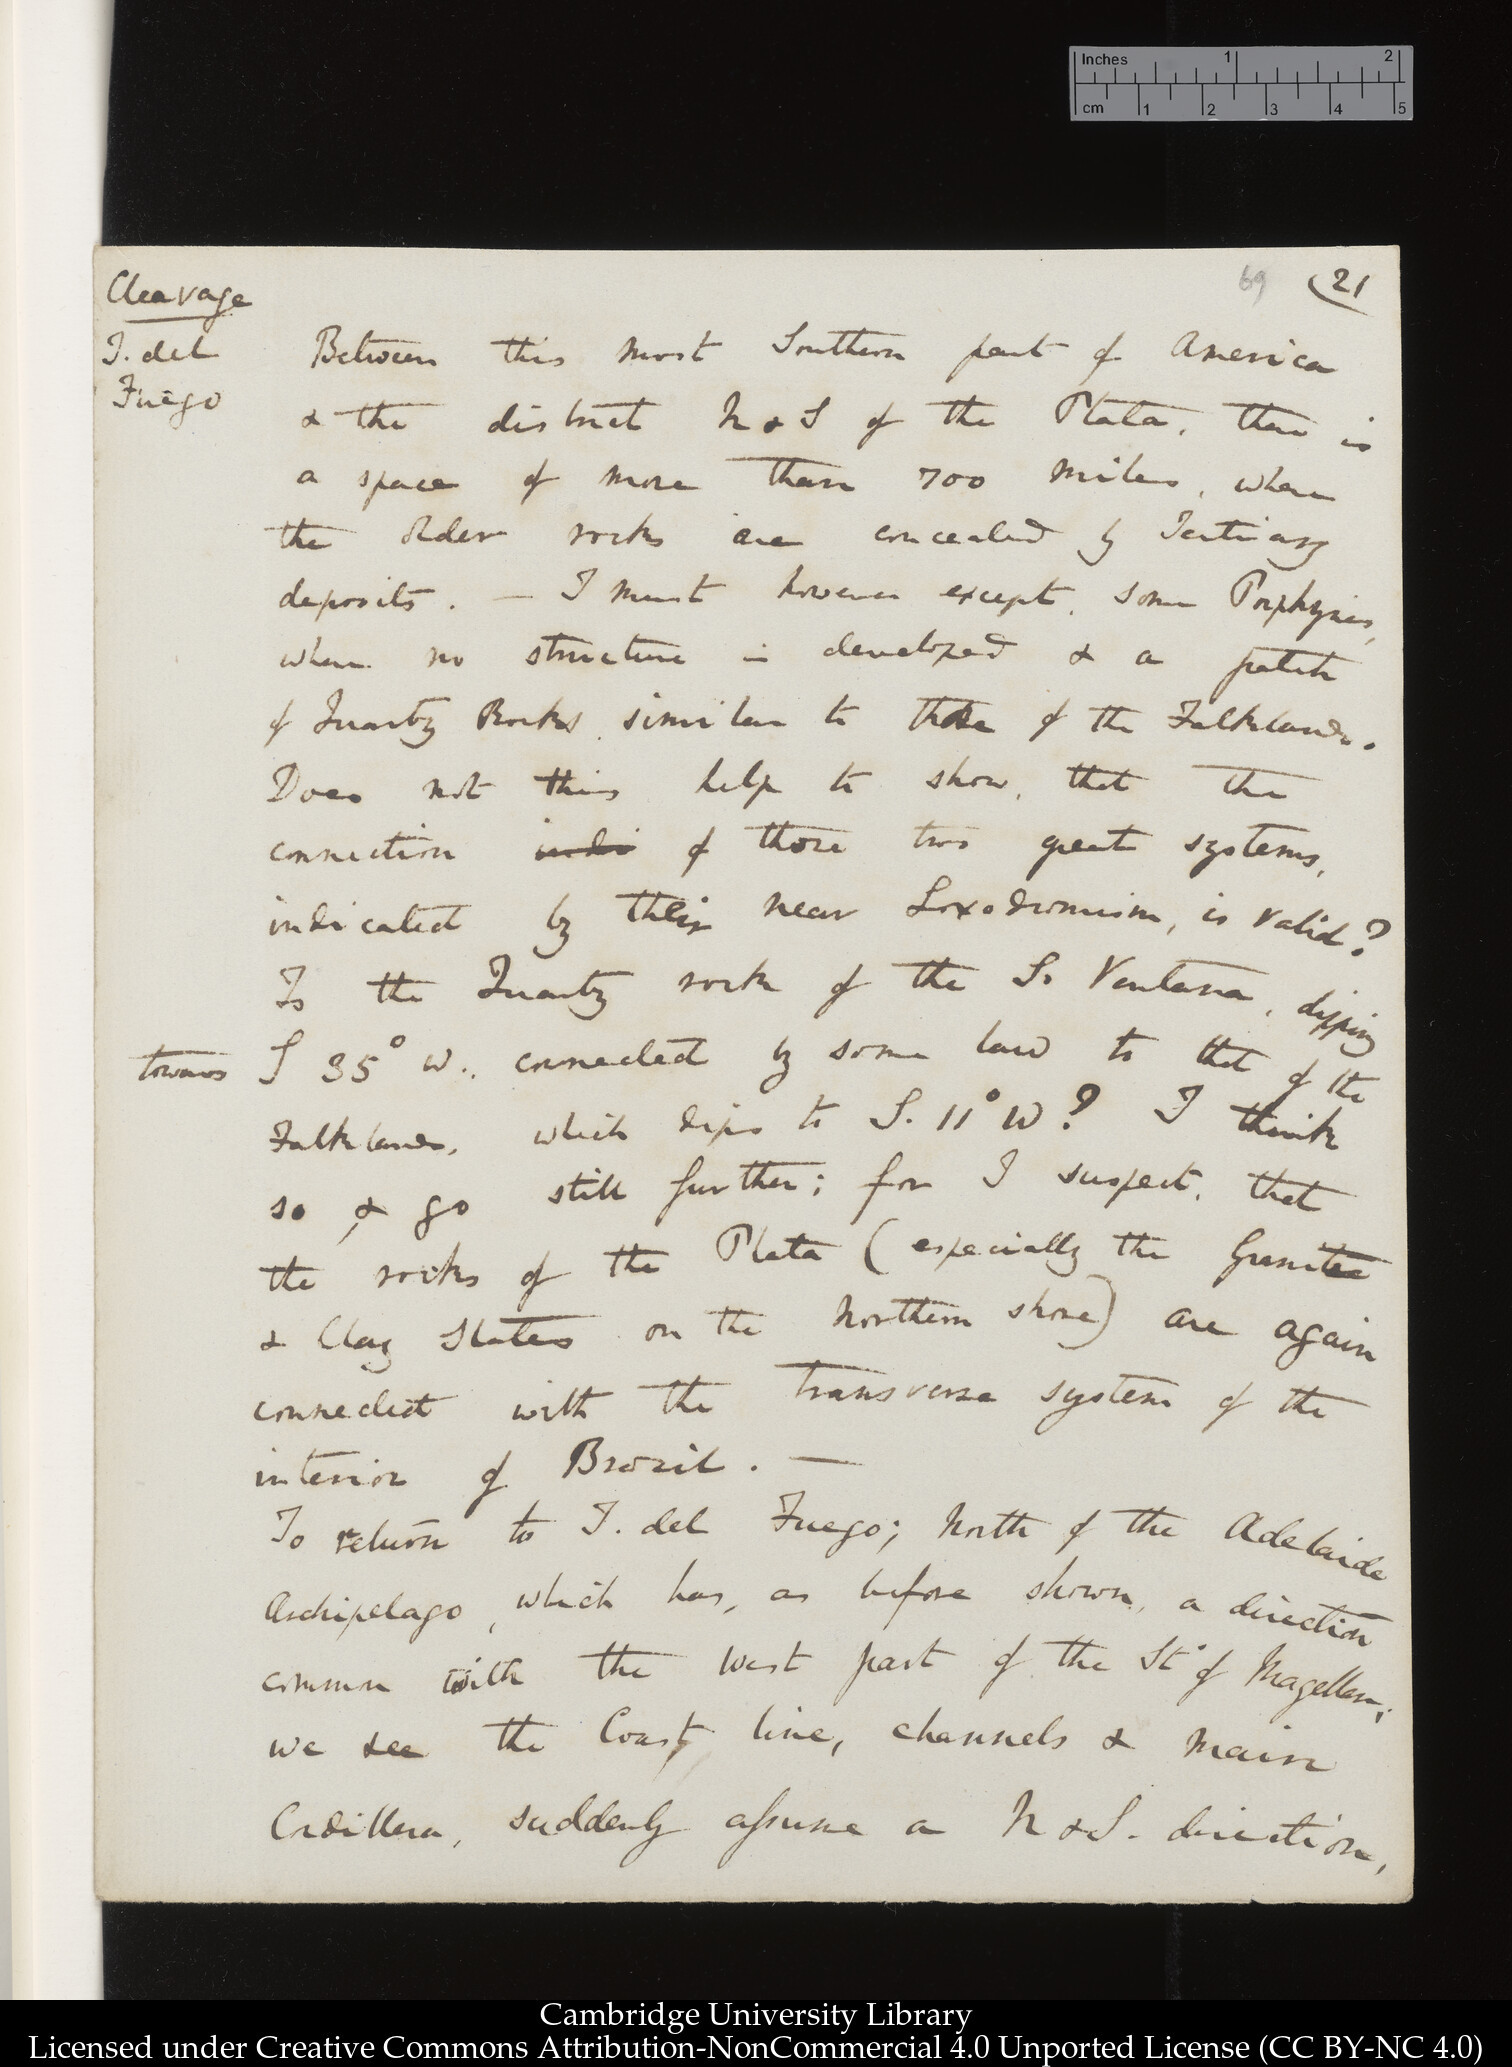 Inches 1 2
cm 1 2 3 4 5
Cleavage
69 (21
T. del
Fuego
Between this most Southern part of America
& the district N & S of the Plata, there is
a space of more than 700 miles, where
the older rocks are concealed by Tertiary
deposits. — I must however except, some Porphyries,
where no structure is developed & a patch
of Quartz Rocks, similar to those of the Falklands.
Does not this help to show, that the
connection indi of those two great systems,
indicated by their near Loxodromism, is valid?
Is the Quartz rock of the Sa Ventana, dipping
towards S 35° W., connected by some law to that of the
Falklands, which dips to S. 11° W? I think
so, & go still further; for I suspect, that
the rocks of the Plata (especially the Granite
& Clay Slates on the Northern shore) are again
connected with the transverse system of the
interior of Brazil. —
To return to T. del Fuego; North of the Adelaide
Archipelago, which has, as before shown, a direction
common with the West part of the St of Magellan;
we see the Coast line, channels & main
Cordillera, suddenly assume a N & S. direction,
Cambridge University Library
Licensed under Creative Commons Attribution-NonCommercial 4.0 Unported License (CC BY-NC 4.0)